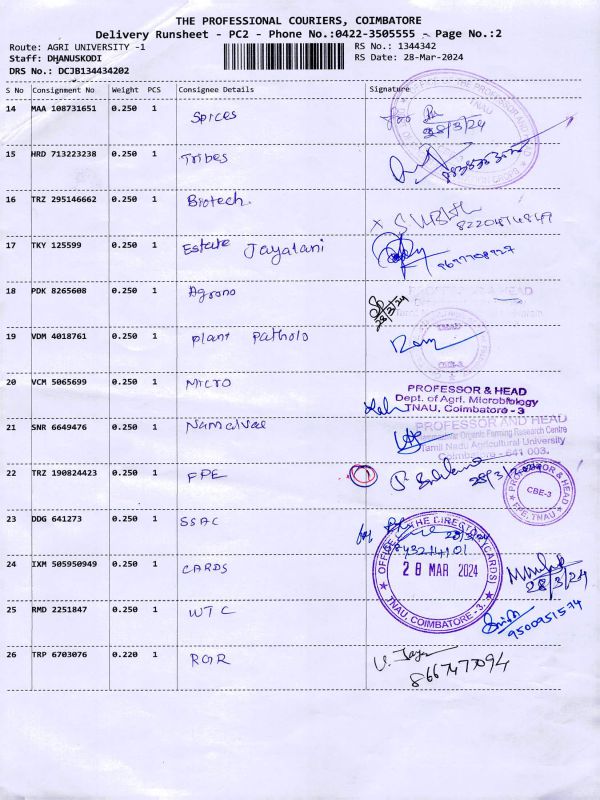 THE PROFESSIONAL COURIERS, COIMBATORE
Delivery Runsheet - PC2 - Phone No.:0422-3505555 - Page No.:2
Route: AGRI UNIVERSITY -1 RS No.: 1344342
Staff: DHANUSKODI RS Date: 28-Mar-2024
DRS No.: DCJB134434202
S No Consignment No Weight PCS Consignee Details Signature
14 MAA 108731651 0.250 1 Spices
28/3/24
TNAU
15 HRD 713223238 0.250 1 Tribes
16 TRZ 295146662 0.250 1 Biotech.
17 TKY 125599 0.250 1 Estate Jayalani
18 PDK 8265608 0.250 1 Agrono
28/3/24
19 VDM 4018761 0.250 1 plant Patholo
Ram
20 VCM 5065699 0.250 1 MICRO
PROFESSOR & HEAD
Dept. of Agri. Microbiology
TNAU, Coimbatore - 3
21 SNR 6649476 0.250 1 Namalvae
PROFESSOR AND HEAD
Organic Farming Research Centre
Tamil Nadu Agricultural University
Coimbatore - 641 003.
22 TRZ 190824423 0.250 1 FPE
PROFESSOR & HEAD
CBE-3
FPE, TNAU
23 DDG 641273 0.250 1 SSAC
28/3/24
OFFICE OF THE DIRECTOR (CARDS)
28 MAR 2024
TNAU, COIMBATORE - 3.
24 IXM 505950949 0.250 1 CARDS
28/3/24
25 RMD 2251847 0.250 1 WTC
9500951574
26 TRP 6703076 0.220 1 RGR
8667477094